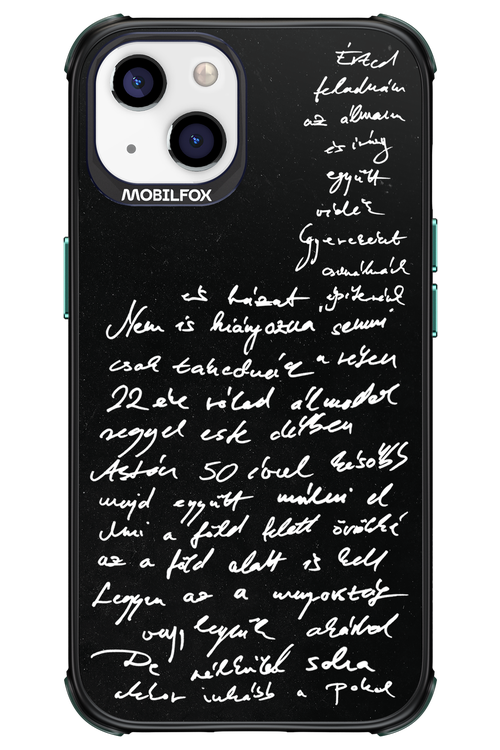 MOBILFOX
Érted
feladnám
az álmaim
és irány
együtt
vidék
Gyerekeket
csinálnánk
és házat építenénk
Nem is hiányozna semmi
csak takednék a rétjen
22 éve rólad álmodok
reggel este délben
Aztán 50 évvel később
majd együtt múlni el
Ami a föld felett örökké
az a föld alatt is kell
Legyen az a mennyország
vagy legyünk akárhol
De nélküled soha
akkor inkább a pokol